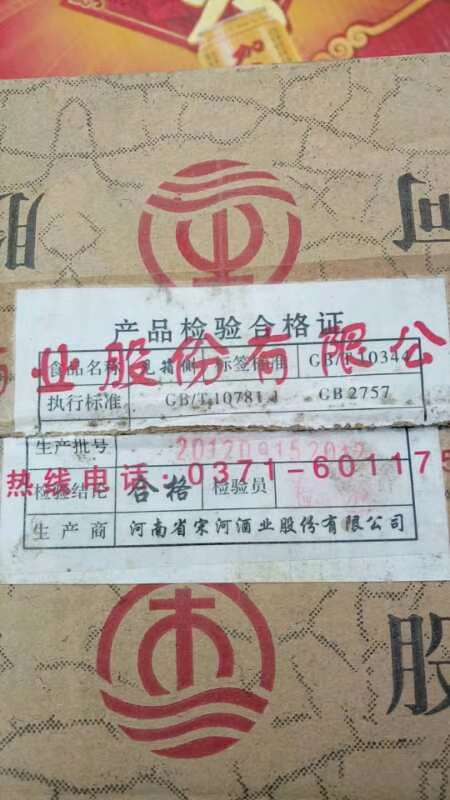 股
河
产品检验合格证
酒业股份有限公
食品名称 见箱侧 标签标准 GB/T 10344
执行标准 GB/T 10781.1 GB 2757
生产批号 20120915
热线电话:0371-601175
检验结论 合格 检验员
生产商 河南省宋河酒业股份有限公司
股